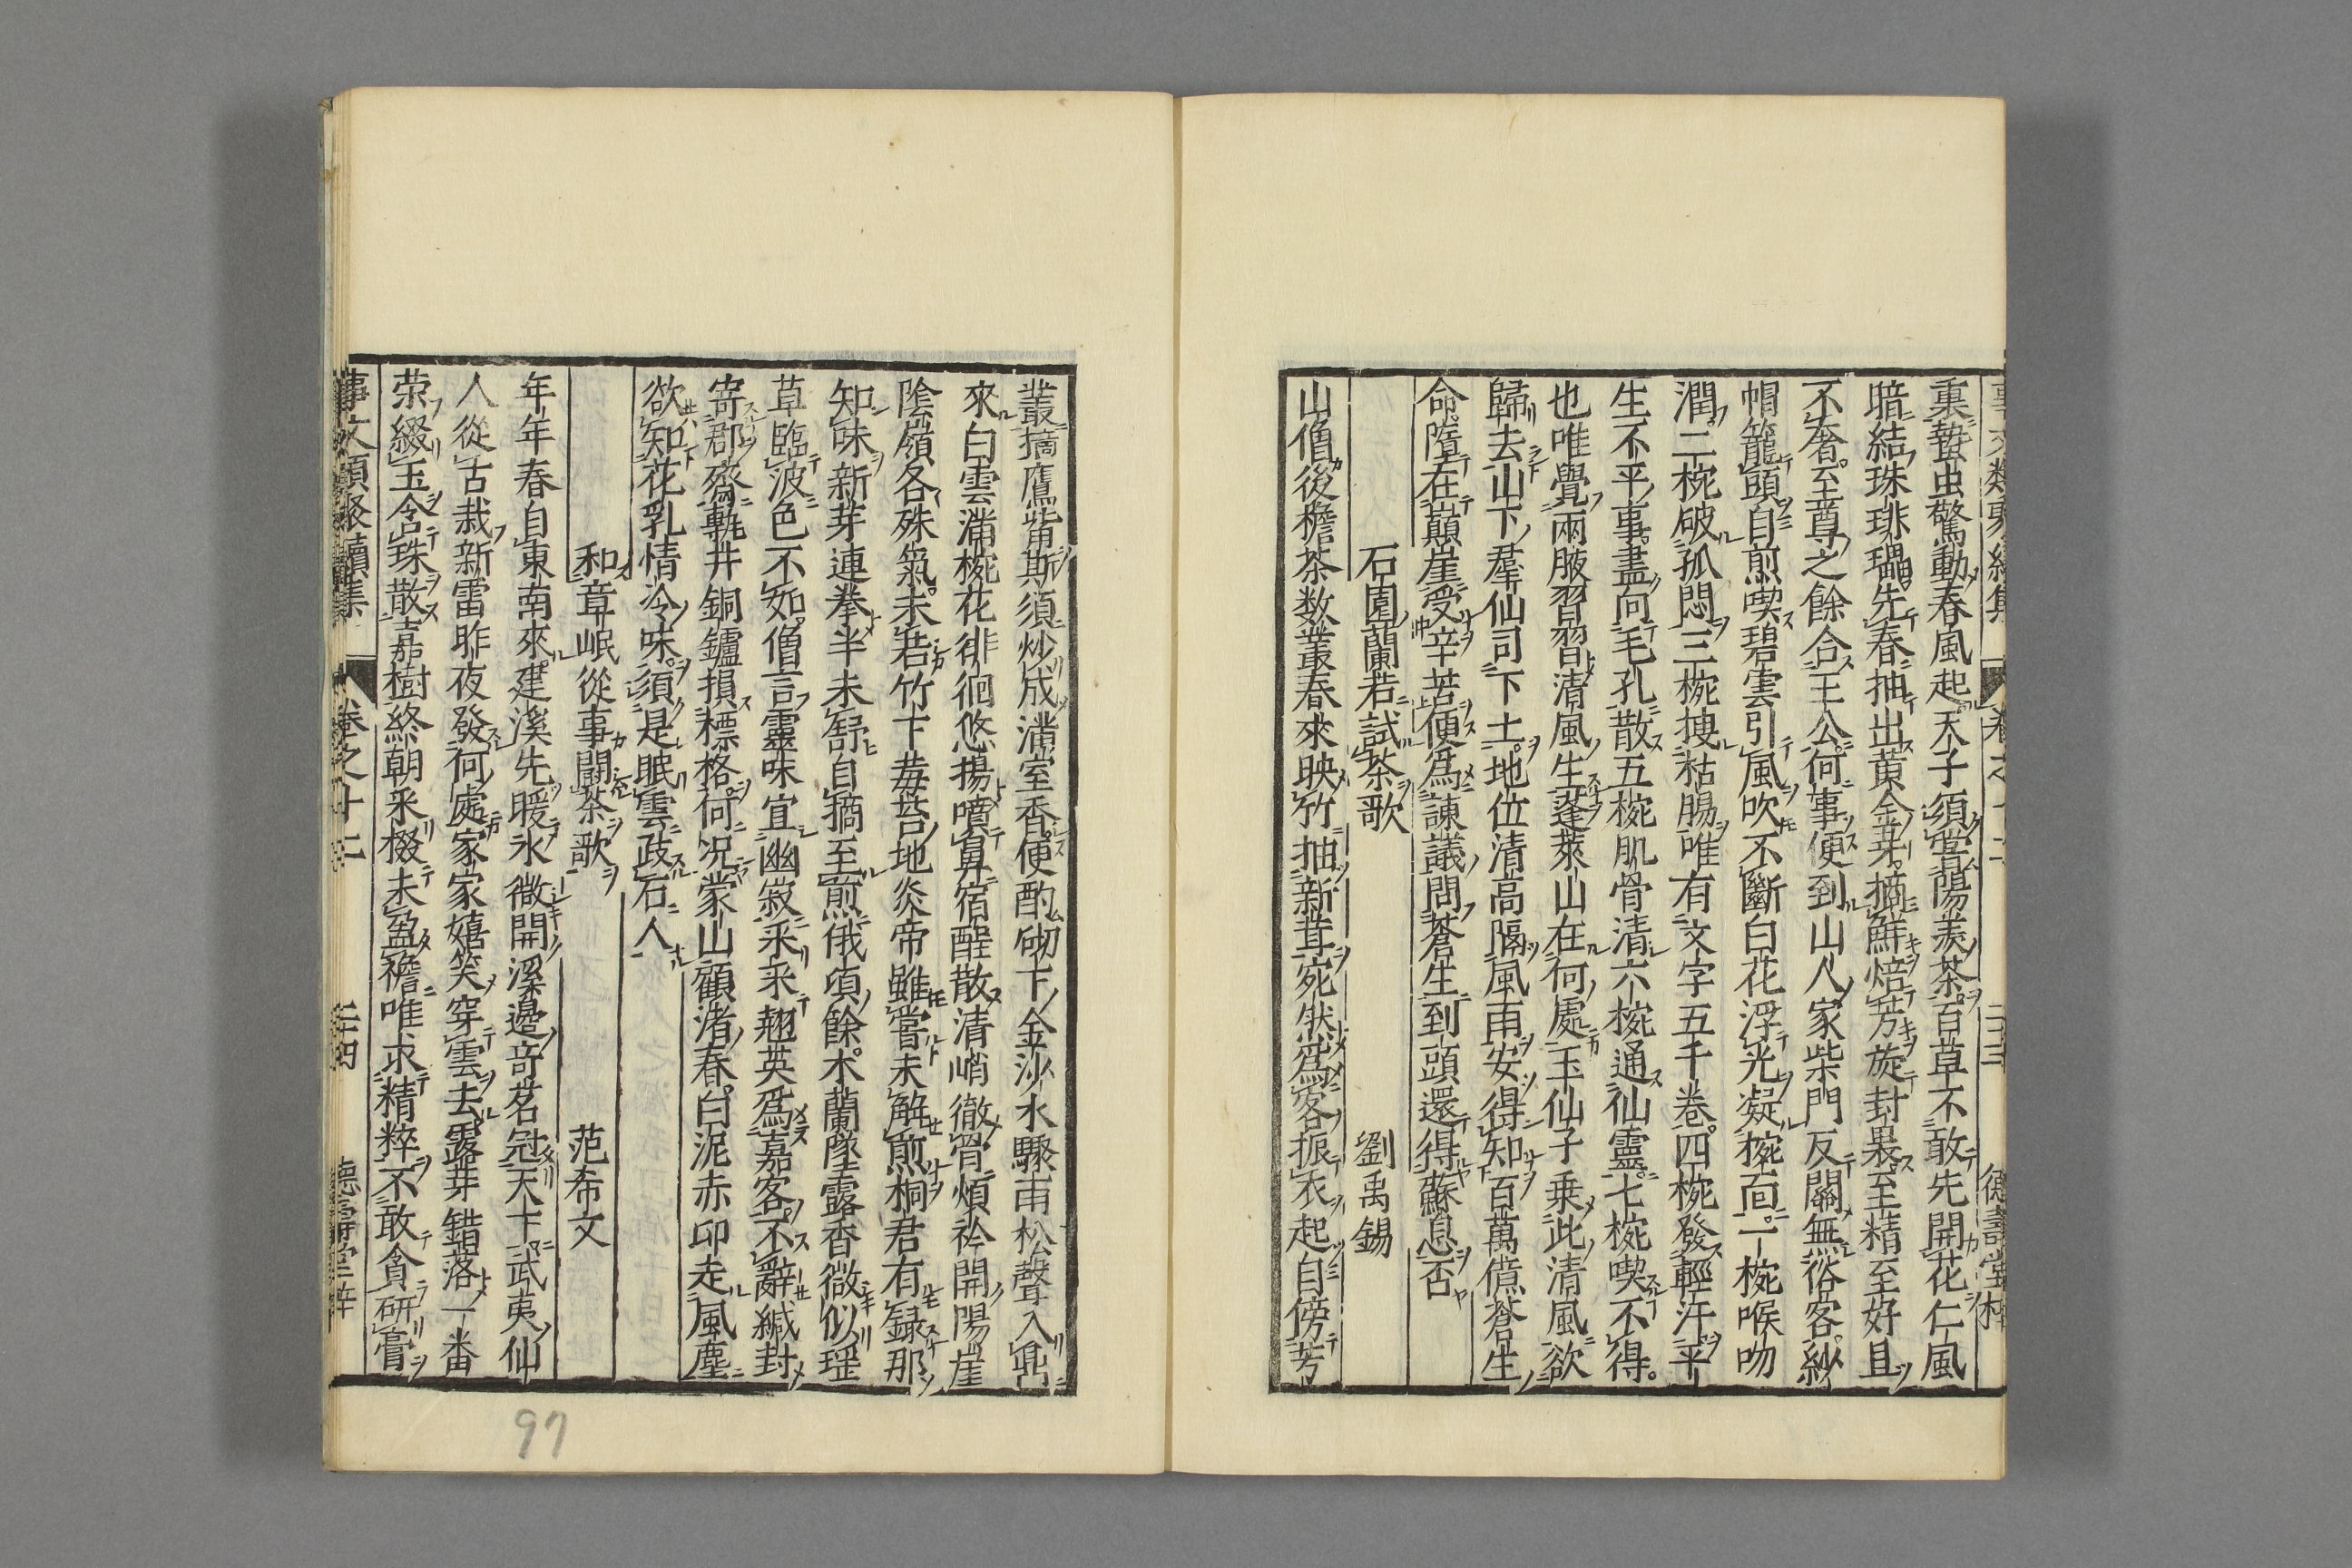 裏蟄虫驚動春風起天子須嘗陽羨茶百草不敢先開花仁風
暗結珠琲瓃先春抽出黄金芽摘鮮焙芳旋封裹至精至好且
不奢至尊之餘合王公何事便到山人家柴門反關無俗客紗
帽籠頭自煎喫碧雲引風吹不斷白花浮光凝椀靣一椀喉吻
潤二椀破孤悶三椀搜枯腸唯有文字五千巻四椀發輕汗平
生不平事盡向毛孔散五椀肌骨清六椀通仙靈七椀喫不得
也唯覺兩腋習習清風生蓬萊山在何處玉仙子乗此清風欲
歸去山下羣仙司下土地位清高隔風雨安得知百萬億蒼生
命隨在巔崖受辛苦便爲諌議問蒼生到頭還得蘇息否
石園蘭若試茶歌 劉禹錫
山僧後檐茶数叢春來映竹抽新茸宛然爲客振衣起自傍芳
叢摘鷹觜斯須炒成滿室香便酌砌下金沙水驟雨松聲入鼎
來白雲滿椀花徘徊悠揚噴鼻宿酲散清峭徹骨煩衿開陽崖
陰嶺各殊氣未若竹下莓苔地炎帝雖嘗未解煎桐君有録那
知味新芽連拳半未舒自摘至煎俄頃餘木蘭墜露香微似瑶
草臨波色不如僧言靈味宜幽寂采采翹英爲嘉客不辭緘封
寄郡齋甎井銅鑪損標格何况蒙山顧渚春白泥赤印走風塵
欲知花乳情冷味須是眠雲跂石人
和章岷從事鬪茶歌 范希文
年年春自東南來建溪先暖氷微開溪邊竒茗冠天下武夷仙
人從古栽新雷昨夜發何處家家嬉笑穿雲去露芽錯落一番
荣綴玉含珠散嘉樹終朝采掇未盈襜唯求精粹不敢貪研膏
事文類聚續集 巻之十二 二十四 德壽堂梓
97